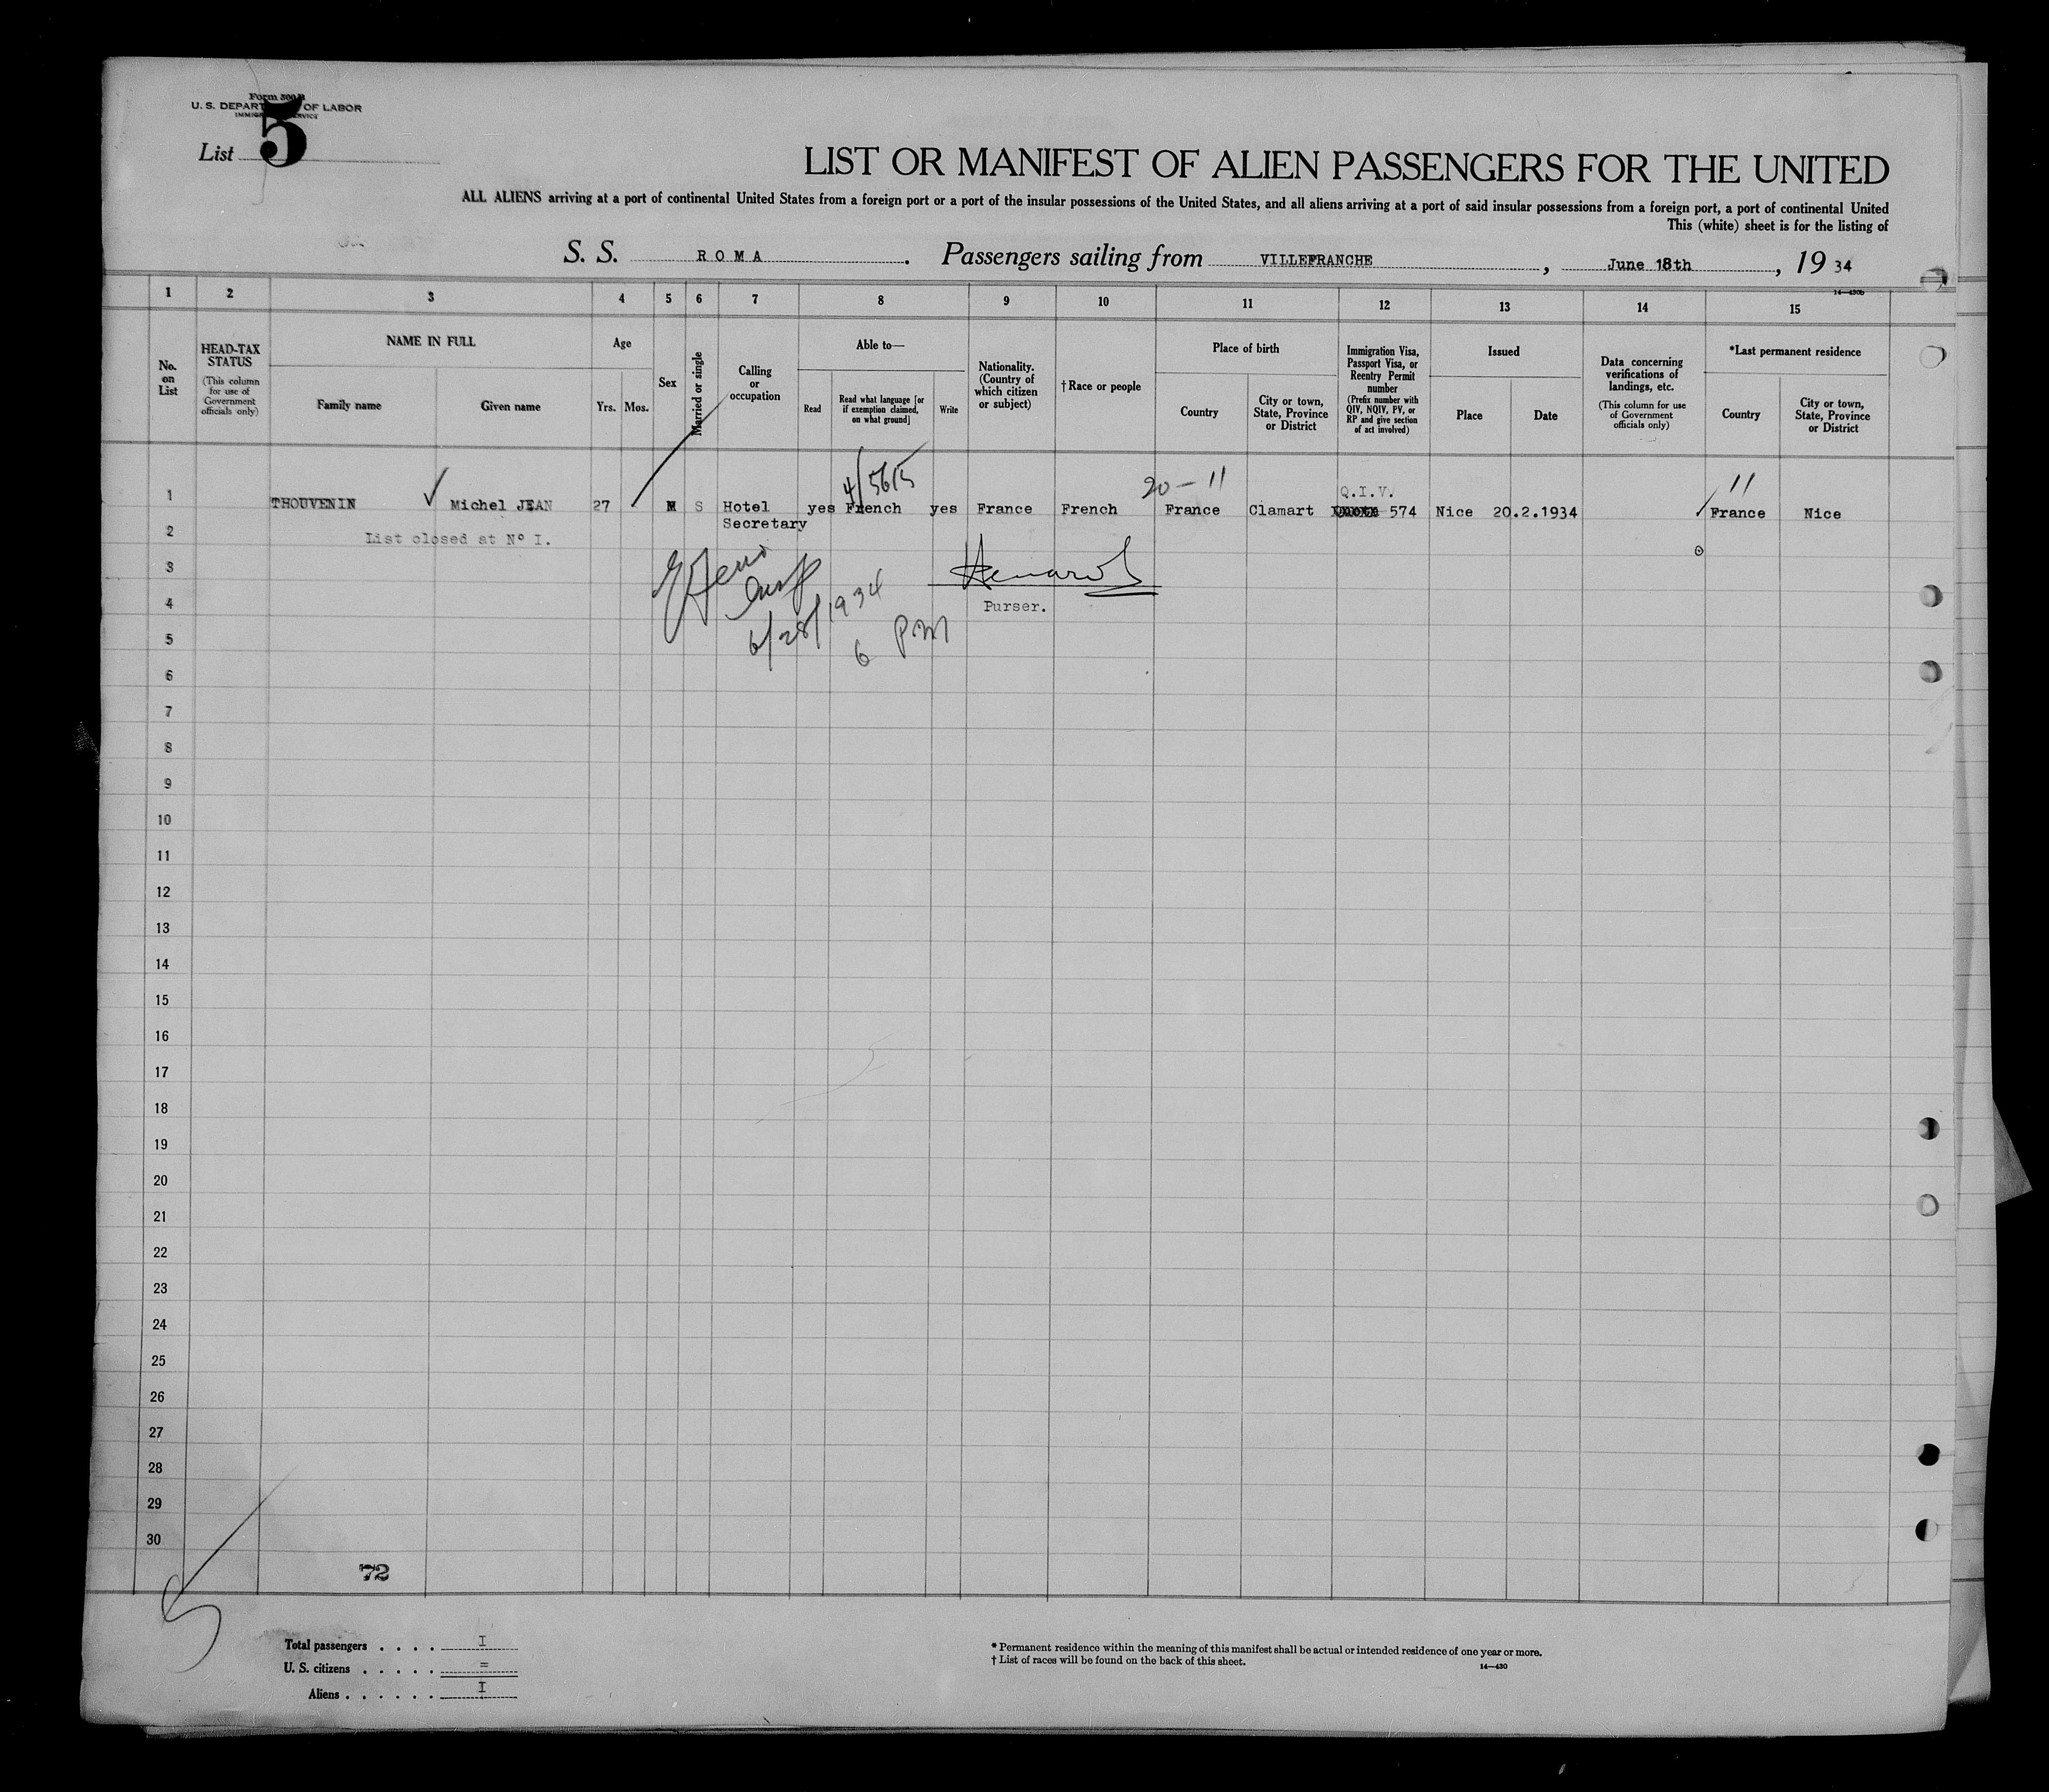 Form 500 B
U. S. DEPART OF LABOR
IMMIGR SERVICE
List 5
LIST OR MANIFEST OF ALIEN PASSENGERS FOR THE UNITED
ALL ALIENS arriving at a port of continental United States from a foreign port or a port of the insular possessions of the United States, and all aliens arriving at a port of said insular possessions from a foreign port, a port of continental United
This (white) sheet is for the listing of
S. S. ROMA. Passengers sailing from VILLEFRANCHE, June 18th, 19 34
14—430b
1 2 3 4 5 6 7 8 9 10 11 12 13 14 15
No. on List
HEAD-TAX STATUS (This column for use of Government officials only)
NAME IN FULL
Family name
Given name
Age
Yrs.
Mos.
Sex
Married or single
Calling or occupation
Able to—
Read
Read what language [or if exemption claimed, on what ground]
Write
Nationality. (Country of which citizen or subject)
†Race or people
Place of birth
Country
City or town, State, Province or District
Immigration Visa, Passport Visa, or Reentry Permit number (Prefix number with QIV, NQIV, PV, or RP and give section of act involved)
Issued
Place
Date
Data concerning verifications of landings, etc. (This column for use of Government officials only)
*Last permanent residence
Country
City or town, State, Province or District
4/5615
20-11
Q.I.V.
11
1 THOUVENIN Michel JEAN 27 M S Hotel yes French yes France French France Clamart 574 Nice 20.2.1934 France Nice
Secretary
2 List closed at Nº I.
3
4 Purser.
6/28/1934
5 6 PM
6
7
8
9
10
11
12
13
14
15
16
17
18
19
20
21
22
23
24
25
26
27
28
29
30
72
5
Total passengers . . . . I
U. S. citizens . . . . . =
Aliens . . . . . . I
* Permanent residence within the meaning of this manifest shall be actual or intended residence of one year or more.
† List of races will be found on the back of this sheet.
14—430